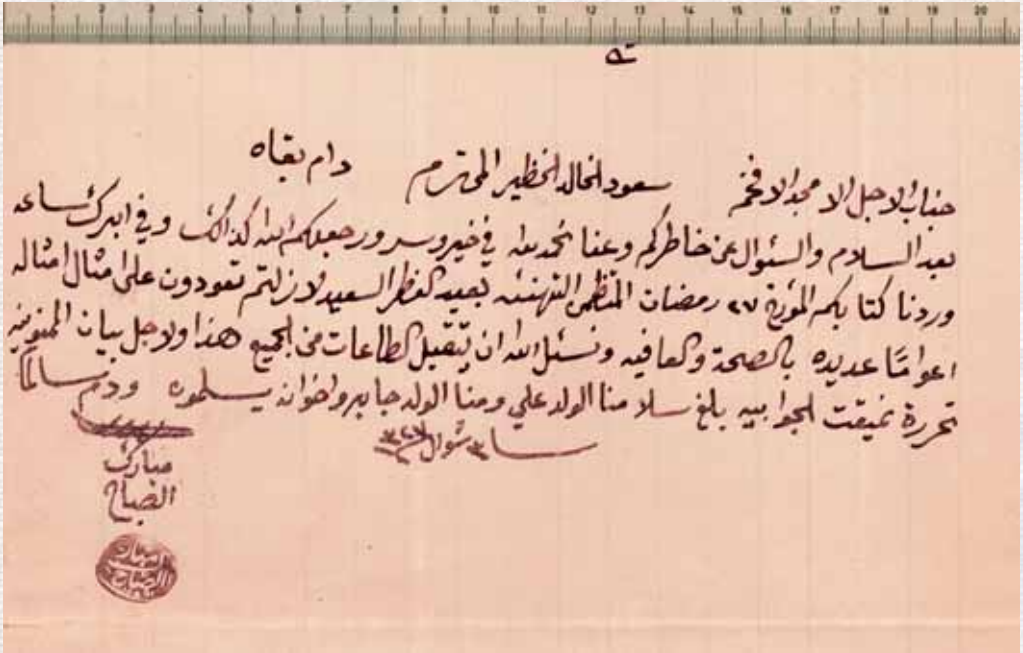 1 2 3 4 5 6 7 8 9 10 11 12 13 14 15 16 17 18 19 20
جناب الاجل الامجد الافخم سعود الخالد الخظير المحترم دام بقاه
بعد السلام والسئوال عن خاطركم وعنا نحمد الله في خير وسرور جعلكم الله كذالك وفي ابرك ساعه
وردنا كتابكم المؤرخ ٢٧ رمضان المتظمن التهنئه بعيد الفطر السعيد لازلتم تعودون على امثال امثاله
اعوامًا عديده بالصحة والعافيه ونسئل الله ان يتقبل الطاعات من الجميع هذا ولاجل بيان الممنونيه
تحررة نميقت الجوابيه بلغ سلامنا الولد علي ومنا الولد جابر واخوانه يسلموه ودم سالمًا
٣ شوال ١٣٢٧
مبارك
الصباح